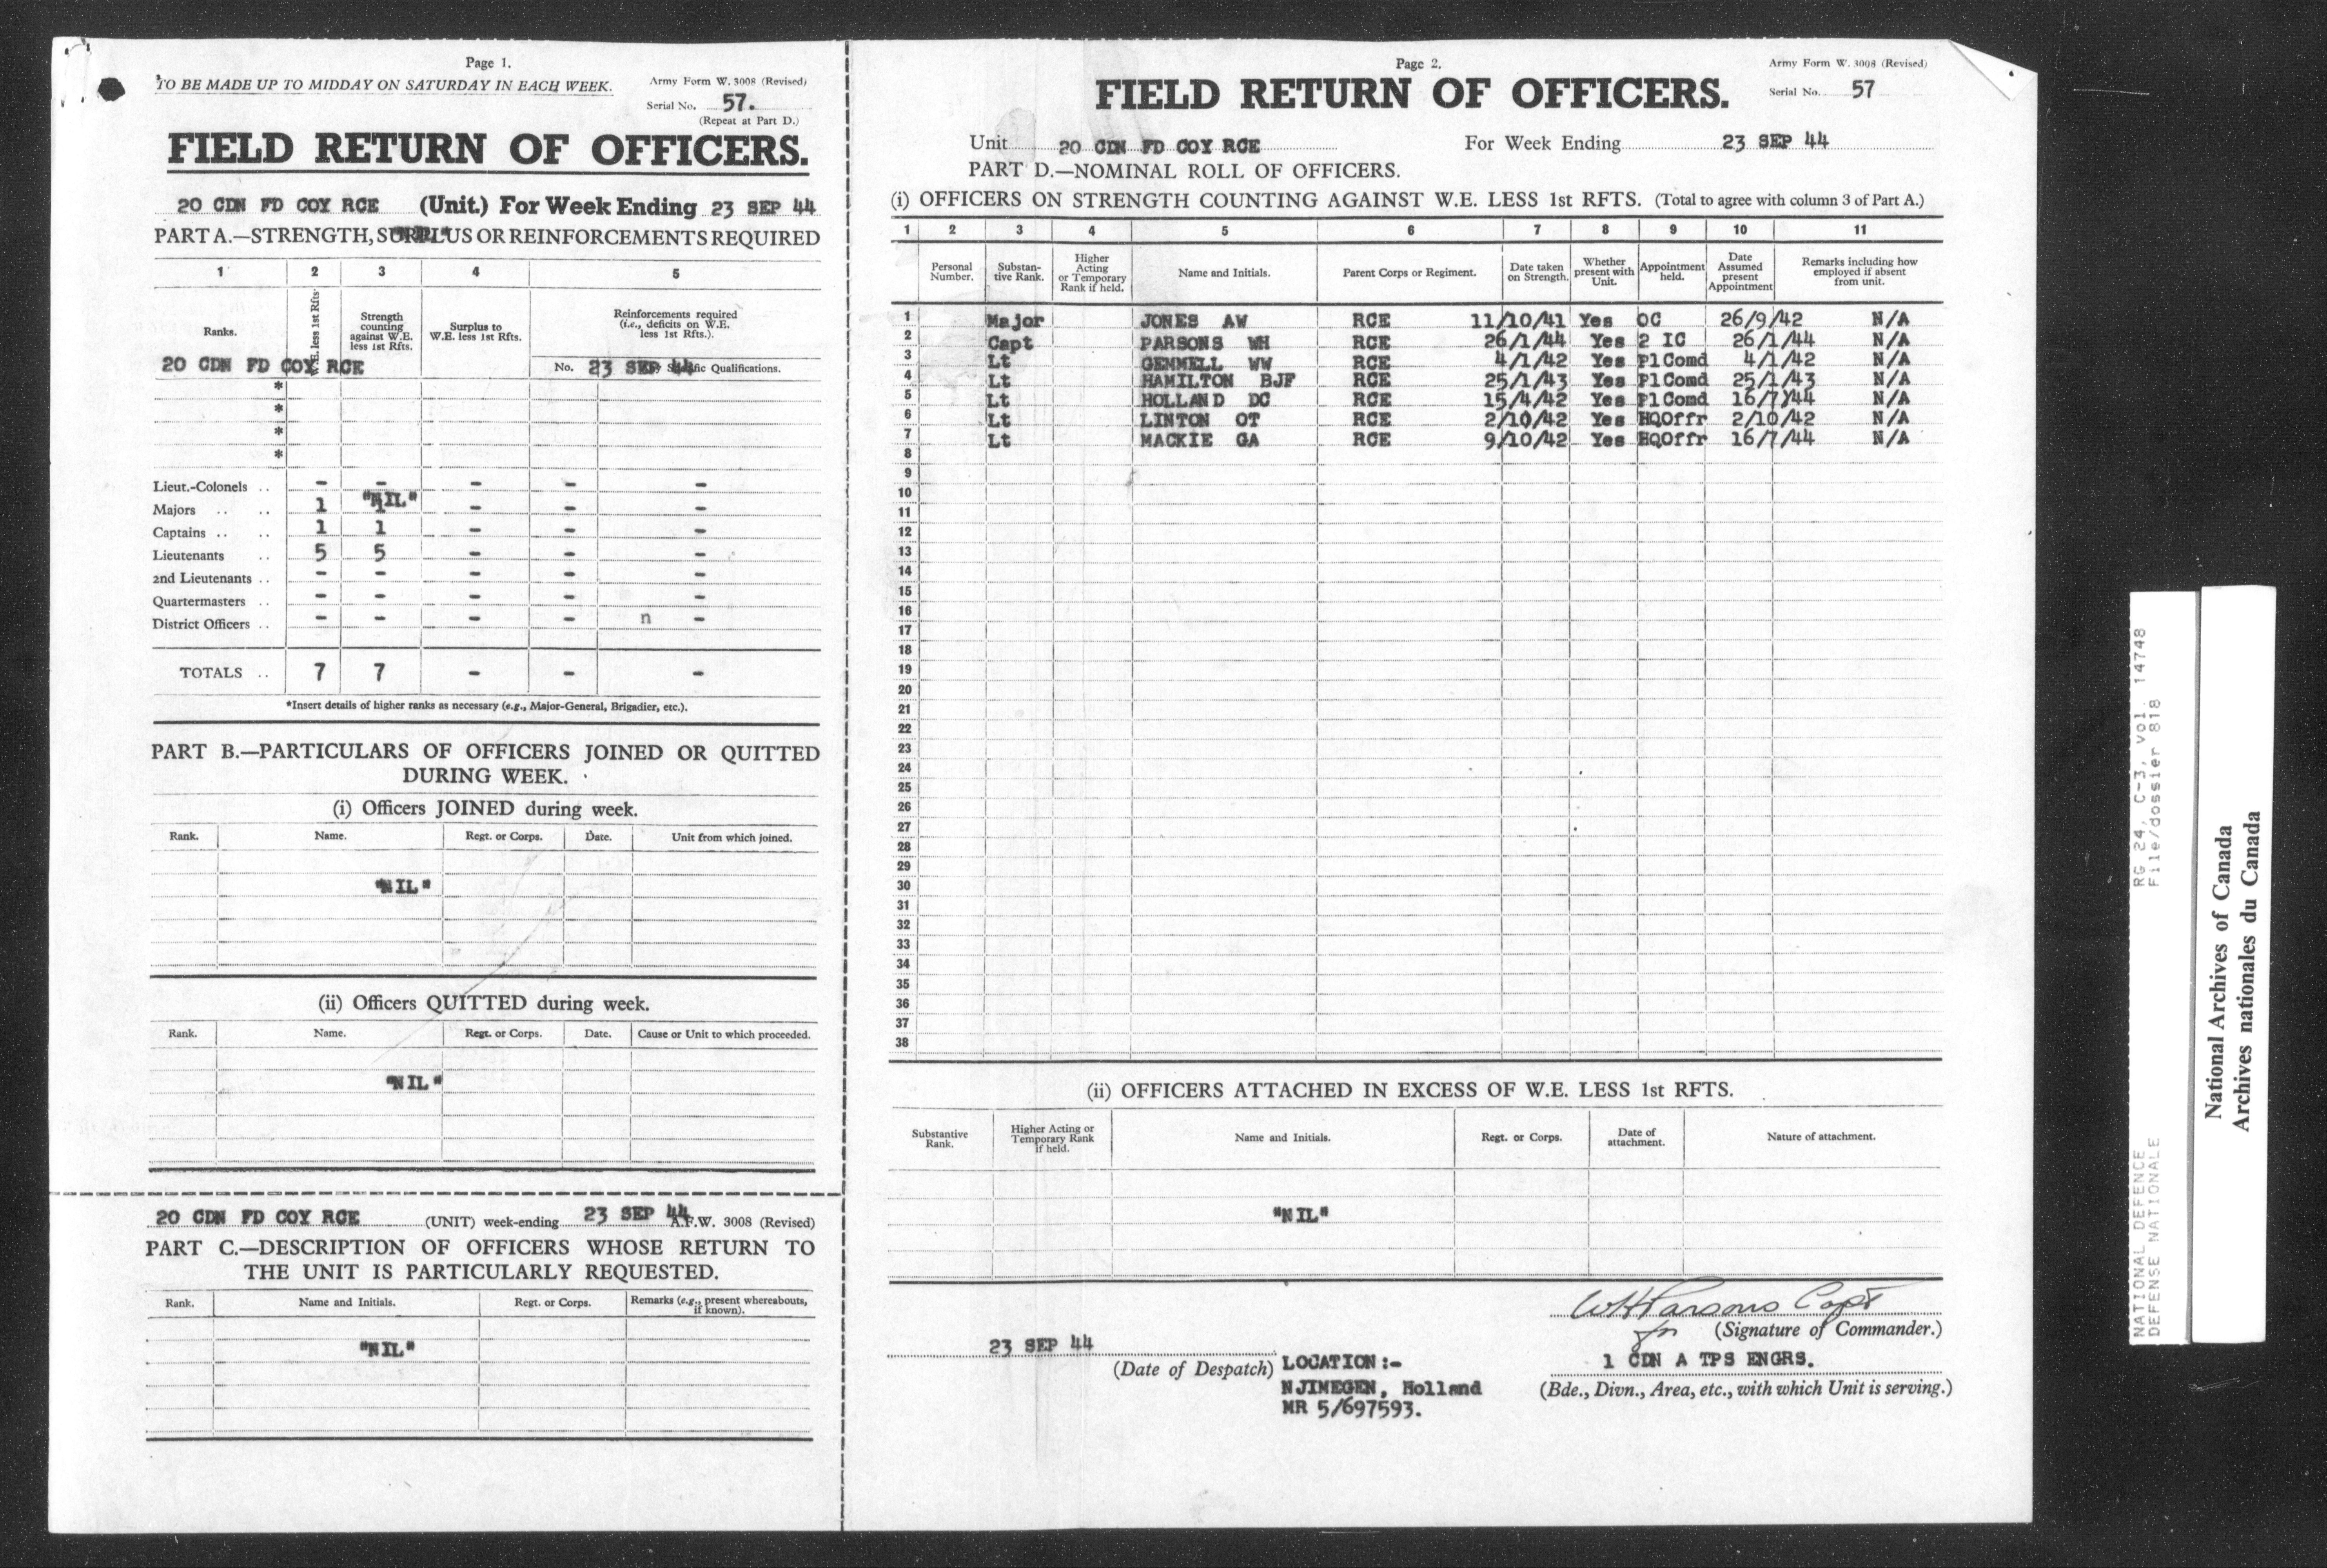 Page 1.
TO BE MADE UP TO MIDDAY ON SATURDAY IN EACH WEEK.
Army Form W. 3008 (Revised)
Serial No. 57.
(Repeat at Part D.)
FIELD RETURN OF OFFICERS.
20 CDN FD COY RCE (Unit.) For Week Ending 23 SEP 44
PART A.—STRENGTH, SURPLUS OR REINFORCEMENTS REQUIRED
1 2 3 4 5
Ranks. W.E. less 1st Rfts. Strength counting against W.E. less 1st Rfts. Surplus to W.E. less 1st Rfts. Reinforcements required (i.e., deficits on W.E. less 1st Rfts.).
20 CDN FD COY RCE No. 23 SEP 44 Qualifications.
*
*
*
*
Lieut.-Colonels .. - - - - -
"NIL"
Majors .. .. 1 1 - - -
Captains .. .. 1 1 - - -
Lieutenants .. 5 5 - - -
2nd Lieutenants .. - - - - -
Quartermasters .. - - - - -
District Officers .. - - - n -
TOTALS .. 7 7 - - -
*Insert details of higher ranks as necessary (e.g., Major-General, Brigadier, etc.).
PART B.—PARTICULARS OF OFFICERS JOINED OR QUITTED
DURING WEEK.
(i) Officers JOINED during week.
Rank. Name. Regt. or Corps. Date. Unit from which joined.
"NIL"
(ii) Officers QUITTED during week.
Rank. Name. Regt. or Corps. Date. Cause or Unit to which proceeded.
"NIL"
20 CDN FD COY RCE (UNIT) week-ending 23 SEP 44 A.F.W. 3008 (Revised)
PART C.—DESCRIPTION OF OFFICERS WHOSE RETURN TO
THE UNIT IS PARTICULARLY REQUESTED.
Rank. Name and Initials. Regt. or Corps. Remarks (e.g., present whereabouts, if known).
"NIL"
Page 2.
Army Form W. 3008 (Revised)
FIELD RETURN OF OFFICERS.
Serial No. 57
Unit 20 CDN FD COY RCE For Week Ending 23 SEP 44
PART D.—NOMINAL ROLL OF OFFICERS.
(i) OFFICERS ON STRENGTH COUNTING AGAINST W.E. LESS 1st RFTS. (Total to agree with column 3 of Part A.)
1 2 3 4 5 6 7 8 9 10 11
Personal Number. Substantive Rank. Higher Acting or Temporary Rank if held. Name and Initials. Parent Corps or Regiment. Date taken on Strength. Whether present with Unit. Appointment held. Date Assumed present Appointment Remarks including how employed if absent from unit.
1 Major JONES AW RCE 11/10/41 Yes OC 26/9/42 N/A
2 Capt PARSONS WH RCE 26/1/44 Yes 2 IC 26/1/44 N/A
3 Lt GEMMELL WW RCE 4/1/42 Yes PlComd 4/1/42 N/A
4 Lt HAMILTON BJF RCE 25/1/43 Yes PlComd 25/1/43 N/A
5 Lt HOLLAND DC RCE 15/4/42 Yes PlComd 16/7/44 N/A
6 Lt LINTON OT RCE 2/10/42 Yes HQOffr 2/10/42 N/A
7 Lt MACKIE GA RCE 9/10/42 Yes HQOffr 16/7/44 N/A
8
9
10
11
12
13
14
15
16
17
18
19
20
21
22
23
24
25
26
27
28
29
30
31
32
33
34
35
36
37
38
(ii) OFFICERS ATTACHED IN EXCESS OF W.E. LESS 1st RFTS.
Substantive Rank. Higher Acting or Temporary Rank if held. Name and Initials. Regt. or Corps. Date of attachment. Nature of attachment.
"NIL"
WH Parsons Capt
for (Signature of Commander.)
23 SEP 44
(Date of Despatch)
LOCATION:-
NJIMEGEN, Holland
MR 5/697593.
1 CDN A TPS ENGRS.
(Bde., Divn., Area, etc., with which Unit is serving.)
NATIONAL DEFENCE RG 24, C-3, Vol. 14748
DEFENSE NATIONALE File/dossier 818
National Archives of Canada
Archives nationales du Canada